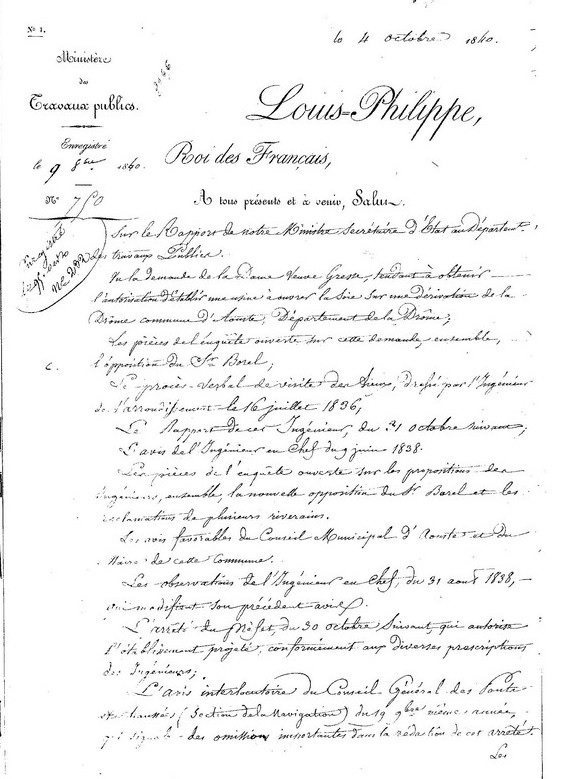 No 1.
le 4 octobre 1840.
Ministère
des
Travaux publics.
Louis=Philippe,
Enregistré
le 9 8bre 1840.
Roi des Français,
No 750
A tous présents et à venir, Salut.
Sur le Rapport de notre Ministre Secrétaire d'Etat au Départemt.
des travaux Publics.
Vu la demande de la Dame Veuve Gresse, tendant à obtenir
l'autorisation d'établir une usine à ouvrer la Soie sur une dérivation de la
Drôme commune d'Aouste, Département de la Drôme;
Les pièces de l'enquête ouverte sur cette demande, ensemble,
l'opposition du Sr. Borel;
Le procès-verbal de visite des lieux, dressé par l'Ingénieur
de l'arrondissement le 16 juillet 1836;
Le Rapport de cet Ingénieur, du 31 octobre suivant;
L'avis de l'Ingénieur en Chef du 9 juin 1838.
Les pièces de l'enquête ouverte sur les propositions des
Ingénieurs, ensemble, la nouvelle opposition du Sr. Borel et les
réclamations de plusieurs riverains.
Les avis favorables du Conseil Municipal d'Aouste et du
Maire de cette Commune.
Les observations de l'Ingénieur en Chef, du 31 août 1838,
modifiant son précédent avis.
L'arrêté du Préfet, du 30 octobre Suivant, qui autorise
l'établissement projeté, conformément aux diverses prescriptions
des Ingénieurs;
L'avis interlocutoire du Conseil Général des Ponts
et chaussées (Section de la Navigation) du 19 9bre même année,
qui signale des omissions importantes dans la rédaction de cet arrêté.
Les